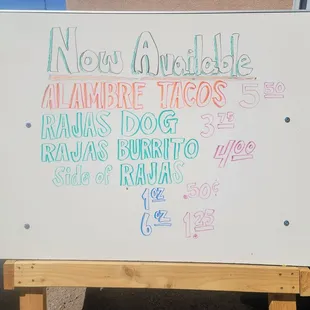 Now Available
ALAMBRE TACOS 5.50
RAJAS DOG 3.75
RAJAS BURRITO 4.00
Side of RAJAS
1 oz .50¢
6 oz 1.35